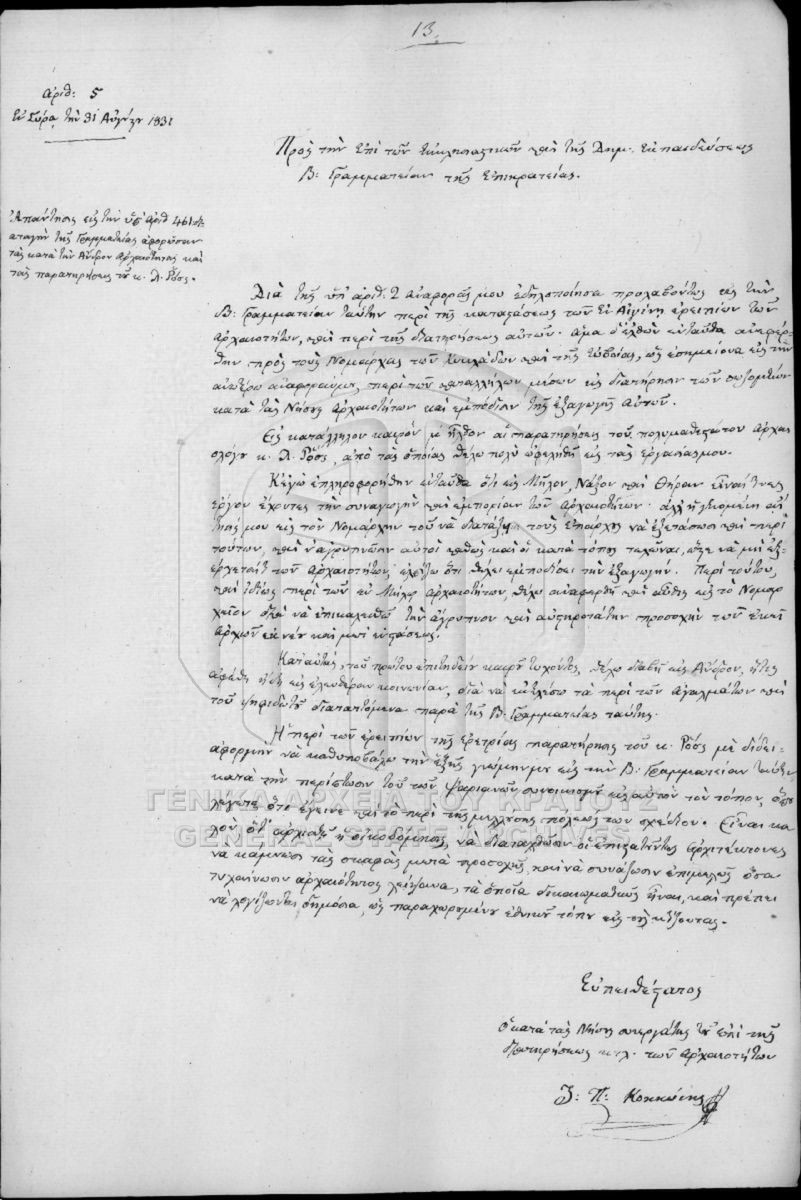 13.
Ἀριθ: 5
Ἐν Σύρᾳ τὴν 31 Αὐγούστου 183
Πρὸς τὴν ἐπὶ τῶν Ἐκκλησιαστικῶν καὶ τῆς Δημ. Ἐκπαιδεύσεως
Β: Γραμματείαν τῆς Ἐπικρατείας.
Ἀπάντησις εἰς τὴν ὑπ' ἀριθ 461
τῆς Γραμματείας ἀφορῶσαν
τὰς κατὰ τὴν Ἄνδρον Ἀρχαιότητας καὶ
τὰς παρατηρήσεις τοῦ κ. Λ. Ῥὸς.
Διὰ τῆς ὑπ' ἀριθ. 2 ἀναφορᾶς μου εἰδηοποίησα προλαβόντως τὴν
Β: Γραμματείαν ταύτην περὶ τῆς καταστάσεως τῶν ἐν Αἰγίνῃ ἐρειπίων τῶν
ἀρχαιοτήτων, καὶ περὶ τῆς διατηρήσεως αὐτῶν. Ἅμα δ' ἐλθὼν ἐνταῦθα ἀνεφέρ-
θην πρὸς τοὺς Νομάρχας τῶν Κυκλάδων καὶ τῆς Εὐβοίας, ὡς ἐσημείονα εἰς τὴν
ἀνωτέρω ἀναφοράν μου, περὶ τῶν καταλλήλων μέσων εἰς διατήρησιν τῶν σωζομένων
κατὰ τὰς Νήσους Ἀρχαιοτήτων καὶ ἐμπόδισιν τῆς ἐξαγωγῆς αὐτῶν.
Εἰς κατάλληλον καιρὸν μ' ἦλθον αἱ παρατηρήσεις τοῦ πολυμαθεστάτου ἀρχαι
ολόγου κ. Λ. Ῥὸς, ἀπὸ τὰς ὁποίας θέλω πολὺ ὠφεληθῆ εἰς τὰς ἐργασίας μου.
Κἀγὼ ἐπληροφορήθην ἐνταῦθα ὅτι εἰς Μῆλον, Νάξον καὶ Θήραν εἶναί τινες
ἔργον ἔχοντες τὴν συναγωγὴν καὶ ἐμπορίαν τῶν ἀρχαιοτήτων. ἀλλ' ἡ γενομένη
μου εἰς τὸν Νομάρχην τοῦ νὰ διατάξῃ τοὺς Ἐπάρχους νὰ ἐξετάσωσι καὶ περὶ
τούτων, καὶ ν' ἀγρυπνῶσιν αὐτοὶ καθὼς καὶ οἱ κατὰ τόπους τελῶναι, ὥστε νὰ μὴ ἐξ-
τῶν ἀρχαιοτήτων, ἐλπίζω ὅτι θέλει ἐμποδίσει τὴν ἐξαγωγήν. Περὶ τούτου,
καὶ ἰδίως περὶ τῶν ἐν Μήλῳ ἀρχαιοτήτων, θέλω ἀναφερθῆ καὶ αὖθις εἰς τὸ Νομαρ
χεῖον διὰ νὰ ἐπικαλεσθῶ τὴν ἄγρυπνον καὶ αὐστηροτάτην προσοχὴν τῶν ἐκεῖ
ἀρχῶν ἐκ νέου καὶ μετ' ἐντάσεως.
Κατ' αὐτὰς, τοῦ πρώτου ἐπιτηδείου καιροῦ τυχόντος, θέλω διαβῆ εἰς Ἄνδρον, ἥτις
ἀφέθη ἤδη εἰς ἐλευθέραν κοινωνίαν, διὰ νὰ ἐκτελέσω τὰ περὶ τῶν Ἀγαλμάτων καὶ
τοῦ ψηφιδωτοῦ διαταττόμενα παρὰ τῆς Β: Γραμματείας ταύτης.
Ἡ περὶ τῶν ἐρειπίων τῆς Ἐρετρίας παρατήρησις τοῦ κ. Ῥὸς μὲ δίδει
ἀφορμὴν νὰ καθυποβάλω τὴν ἑξῆς γνώμην μου εἰς τὴν Β: Γραμματείαν ταύτην
κατὰ τὴν περίστασιν τοῦ τῶν Ψαριανῶν συνοικισμοῦ εἰς αὐτὸν τὸν τόπον, ὅπου
λέγεται ὅτι ἔγεινε καὶ τὸ περὶ τῆς μελλούσης πόλεως των σχέδιον. Εἶναι κα
λὸν, ὅτ' ἀρχίσῃ ἡ οἰκοδόμησις, νὰ διαταχθῶσιν οἱ ἐπιστατοῦντες ἀρχιτέκτονες
νὰ κάμνωσι τὰς σκαφὰς μετὰ προσοχῆς, καὶ νὰ συνάζωσιν ἐπιμελῶς ὅσα
τυχαίνωσιν ἀρχαιότητος λείψανα, τὰ ὁποῖα δικαιωματικῶς εἶναι, καὶ πρέπει
νὰ λογίζωνται δημόσια, ὡς παραχωρουμένου ἐθνικοῦ τόπου εἰς τοὺς κτίζοντας.
Εὐπειθέστατος
ὁ κατὰ τὰς Νήσους συνεργάτης τοῦ ἐπὶ τῆς
διατηρήσεως κτλ. τῶν ἀρχαιοτήτων
Ι: Π: Κοκκώνης
ΓΕΝΙΚΑ ΑΡΧΕΙΑ ΤΟΥ ΚΡΑΤΟΥΣ
GENERAL STATE ARCHIVES